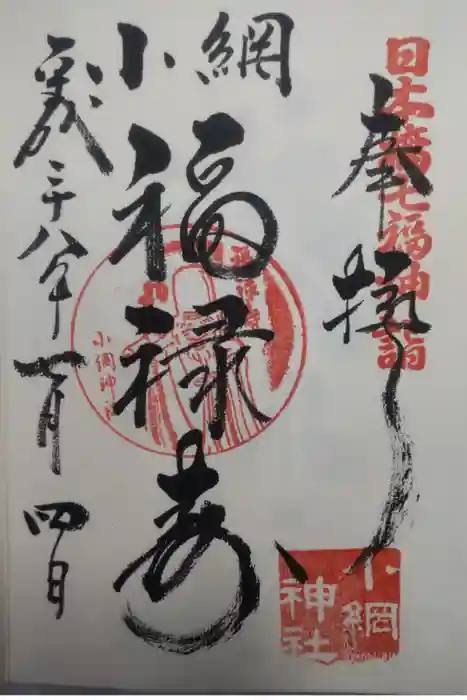 日本橋七福神詣
奉拝
小網
福禄寿
平成二十八年七月四日
小網神社
小網神社